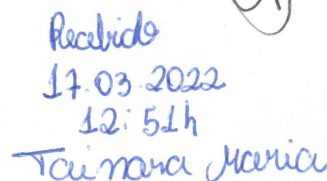 Recebido
17.03.2022
12:51h
Tainara Maria